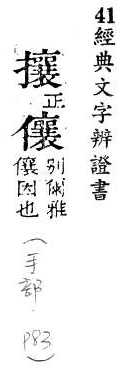 41經典文字辨證書
攘正儴別爾雅
儴因也
(手部 P83)